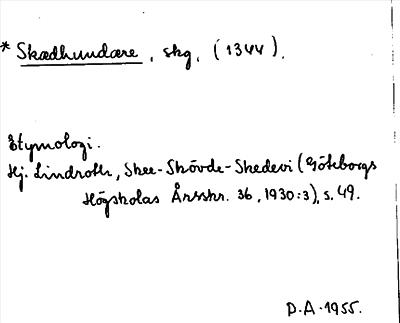 * Skædhundære, skg, (1344).
Etymologi.
Hj. Lindroth, Skee-Skövde-Skedevi (Göteborgs
Högskolas Årsskr. 36, 1930:3), s. 49.
D.A. 1955.